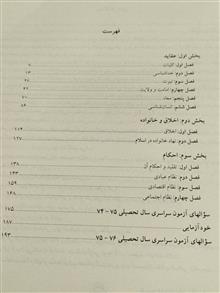 فهرست
بخش اول: عقاید
فصل اول: کلیات
فصل دوم: خداشناسی
فصل سوم: نبوت
فصل چهارم: امامت و ولایت
فصل پنجم: معاد
فصل ششم: انسان‌شناسی
بخش دوم: اخلاق و خانواده
فصل اول: اخلاق ۱۱۴
فصل دوم: نهاد خانواده در اسلام ۱۲۷
بخش سوم: احکام
فصل اول: تقلید و احکام آن ۱۳۸
فصل دوم: نظام عبادی ۱۴۳
فصل سوم: نظام اقتصادی ۱۵۹
فصل چهارم: نظام اجتماعی ۱۶۸
سؤالهای آزمون سراسری سال تحصیلی ۷۵ - ۷۴ ۱۷۵
خودآزمایی ۱۸۷
سؤالهای آزمون سراسری سال تحصیلی ۷۶ - ۷۵ ۱۹۳